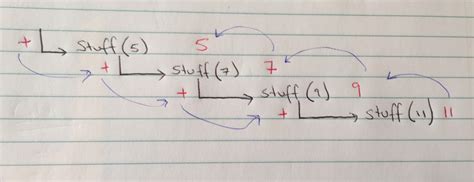 + stuff(5) 5
+ stuff(7) 7
+ stuff(9) 9
+ stuff(11) 11